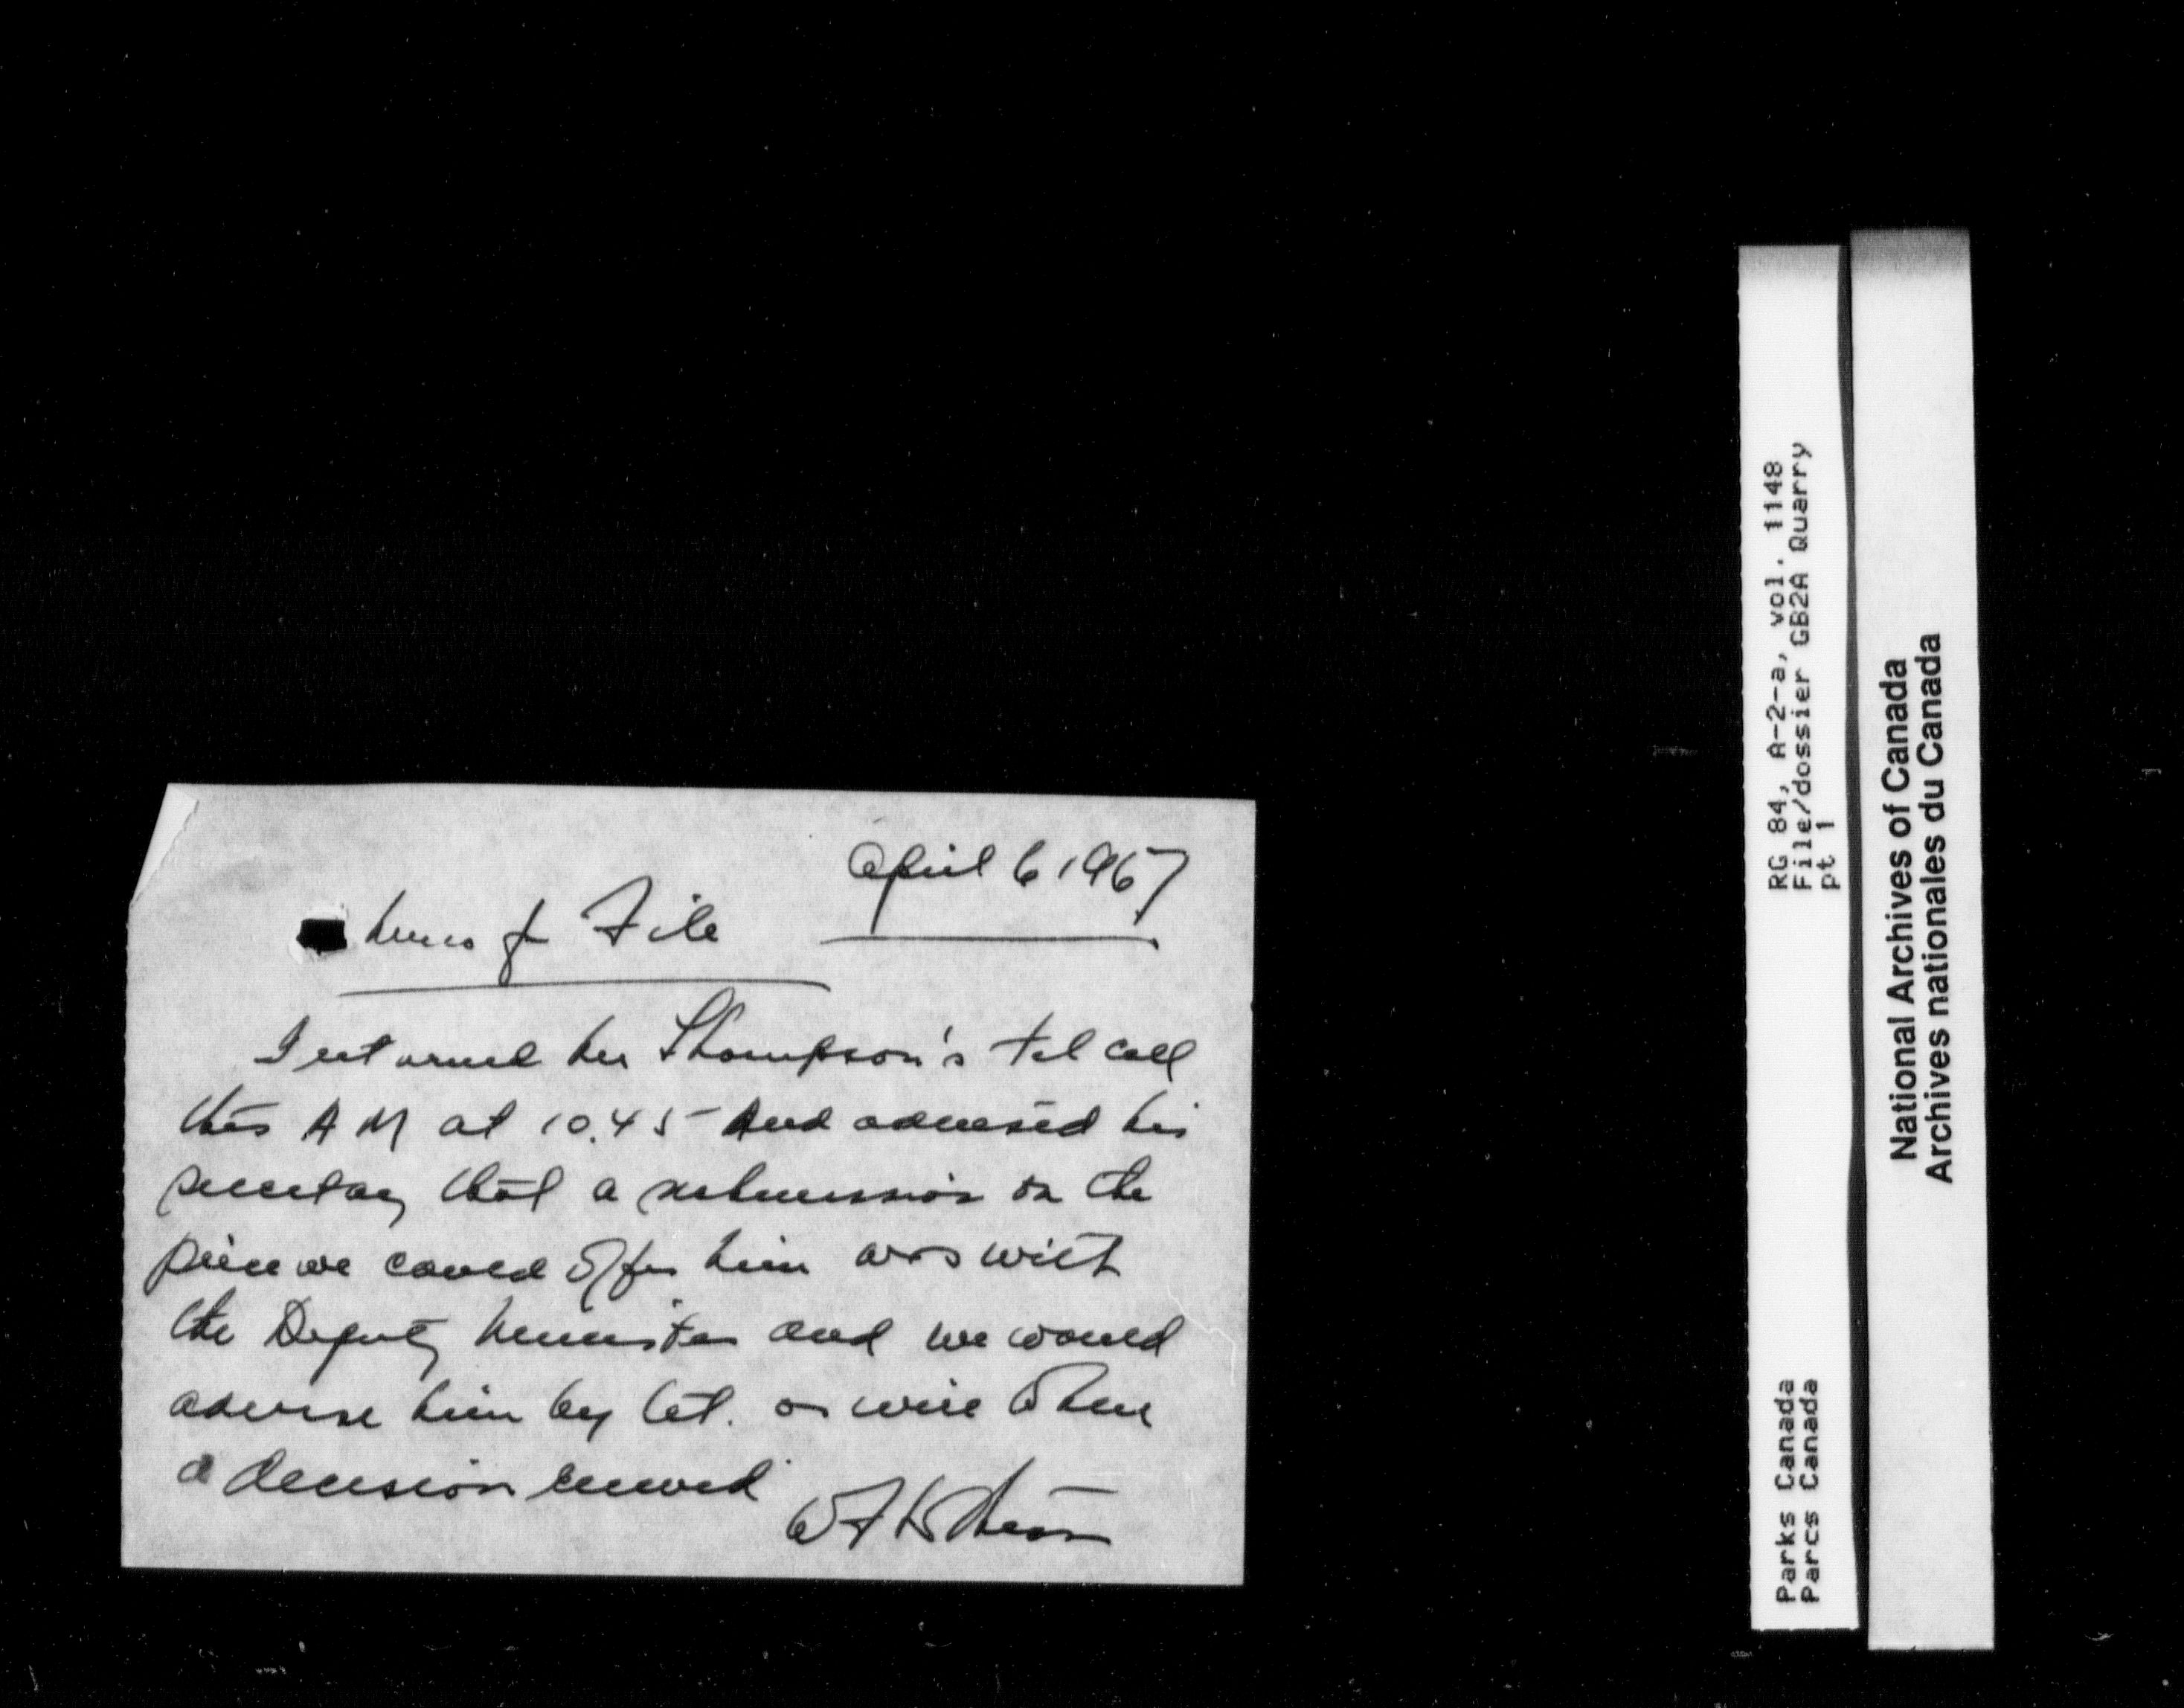 April 6 1967
Memo for File
I returned Mr Thompson's tel call
this AM at 10.45 and advised his
secretary that a submission on the
price we could offer him was with
the Deputy Minister and we would
advise him by let. or wire when
a decision
RG 84, A-2-a, vol. 1148
File/dossier GB2A Quarry
pt 1
Parks Canada
Parcs Canada
National Archives of Canada
Archives nationales du Canada